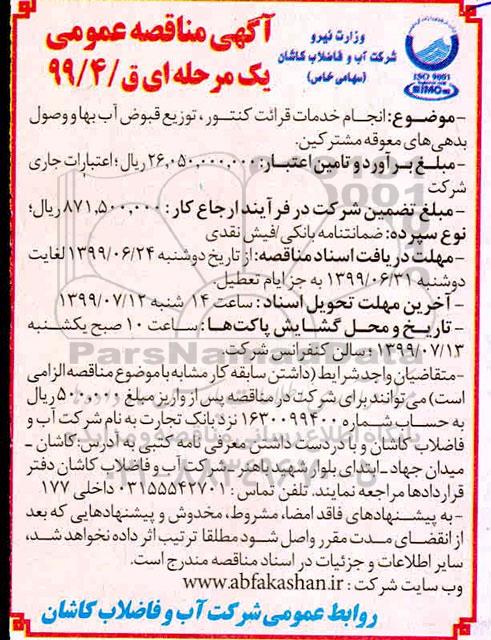 وزارت نیرو
شرکت آب و فاضلاب کاشان
(سهامی خاص)
ISO 9001
آگهی مناقصه عمومی
یک مرحله ای ق/۹۹/۴
-موضوع: انجام خدمات قرائت کنتور، توزیع قبوض آب بها و وصول
بدهی‌های معوقه مشترکین.
-مبلغ برآورد و تامین اعتبار: ۲۶,۰۵۰,۰۰۰,۰۰۰ ریال؛ اعتبارات جاری
شرکت
-مبلغ تضمین شرکت در فرآیند ارجاع کار: ۸۷۱,۵۰۰,۰۰۰ ریال؛
نوع سپرده: ضمانتنامه بانکی/فیش نقدی
-مهلت دریافت اسناد مناقصه: از تاریخ دوشنبه ۱۳۹۹/۰۶/۲۴ لغایت
دوشنبه ۱۳۹۹/۰۶/۳۱ به جز ایام تعطیل.
-آخرین مهلت تحویل اسناد: ساعت ۱۴ شنبه ۱۳۹۹/۰۷/۱۲
-تاریخ و محل گشایش پاکت‌ها: ساعت ۱۰ صبح یکشنبه
۱۳۹۹/۰۷/۱۳ و سالن کنفرانس شرکت.
-متقاضیان واجد شرایط (داشتن سابقه کار مشابه با موضوع مناقصه الزامی
است) می‌توانند برای شرکت در مناقصه پس از واریز مبلغ ۵۰۰,۰۰۰ ریال
به حساب شماره ۱۶۳۰۰۹۹۴۰۰ نزد بانک تجارت به نام شرکت آب و
فاضلاب کاشان و با در دست داشتن معرفی نامه کتبی به آدرس: کاشان -
میدان جهاد-ابتدای بلوار شهید باهنر-شرکت آب و فاضلاب کاشان دفتر
قراردادها مراجعه نمایند. تلفن تماس: ۰۳۱۵۵۵۴۲۷۰۱ داخلی ۱۷۷
-به پیشنهادهای فاقد امضا، مشروط، مخدوش و پیشنهادهایی که بعد
از انقضای مدت مقرر واصل شود مطلقا ترتیب اثر داده نخواهد شد،
سایر اطلاعات و جزئیات در اسناد مناقصه مندرج است.
وب سایت شرکت: www.abfakashan.ir
روابط عمومی شرکت آب و فاضلاب کاشان